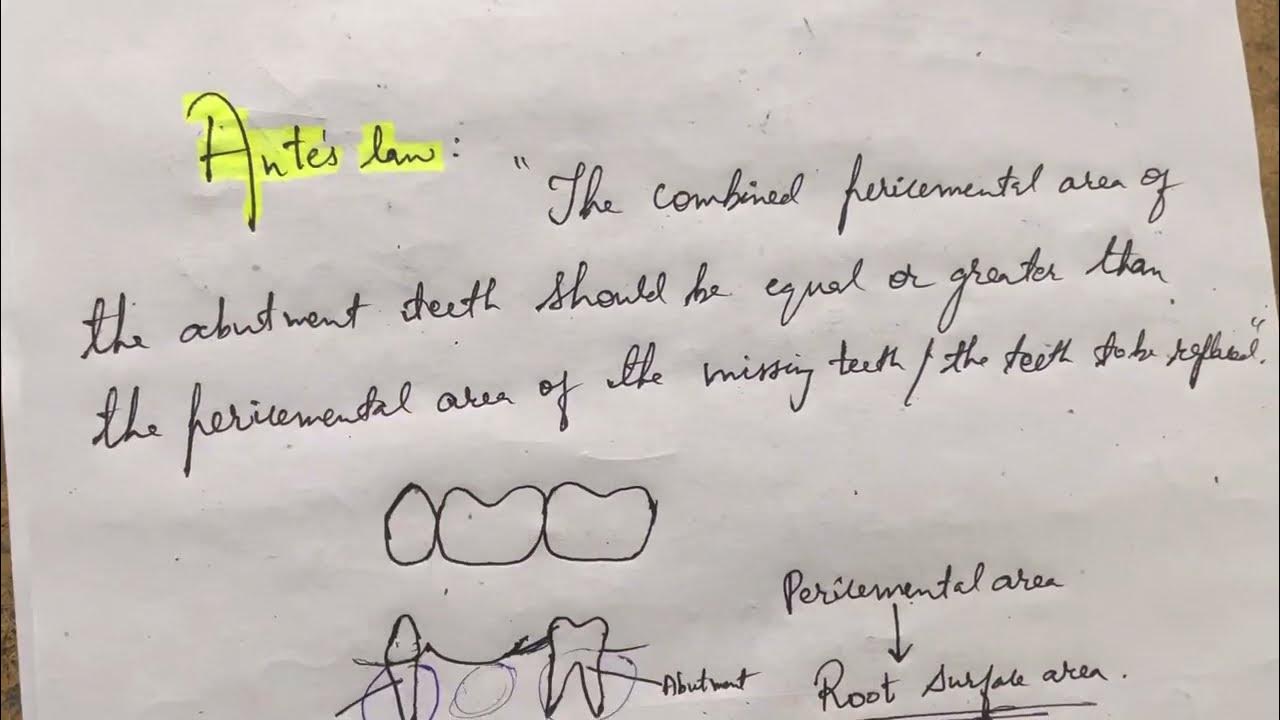 Ante's law: "The combined pericemental area of
the abutment teeth should be equal or greater than
the pericemental area of the missing teeth / the teeth to be replaced".
Pericemental area
Abutment
Root surface area.